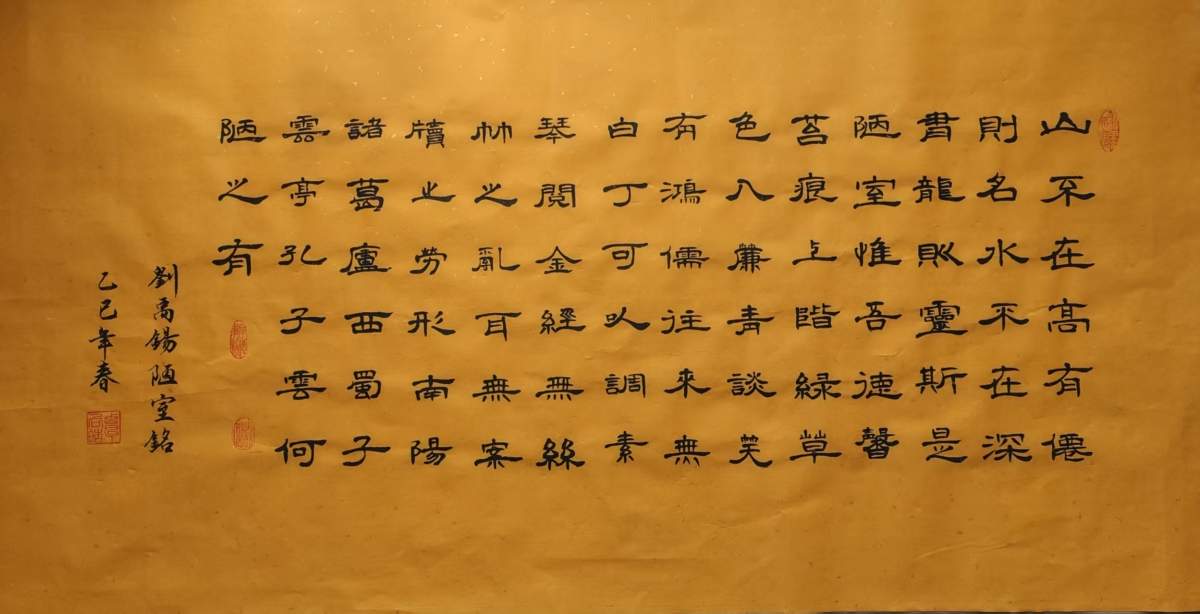 山不在高有僊
則名水不在深
龍則靈斯是
陋室惟吾德馨
苔痕上階緑草
色入簾青談笑
有鴻儒往來無
白丁可以調素
琴閱金經無絲
竹之亂耳無案
牘之勞形南陽
諸葛廬西蜀子
雲亭孔子雲何
陋之有
劉禹錫陋室銘
乙巳年春